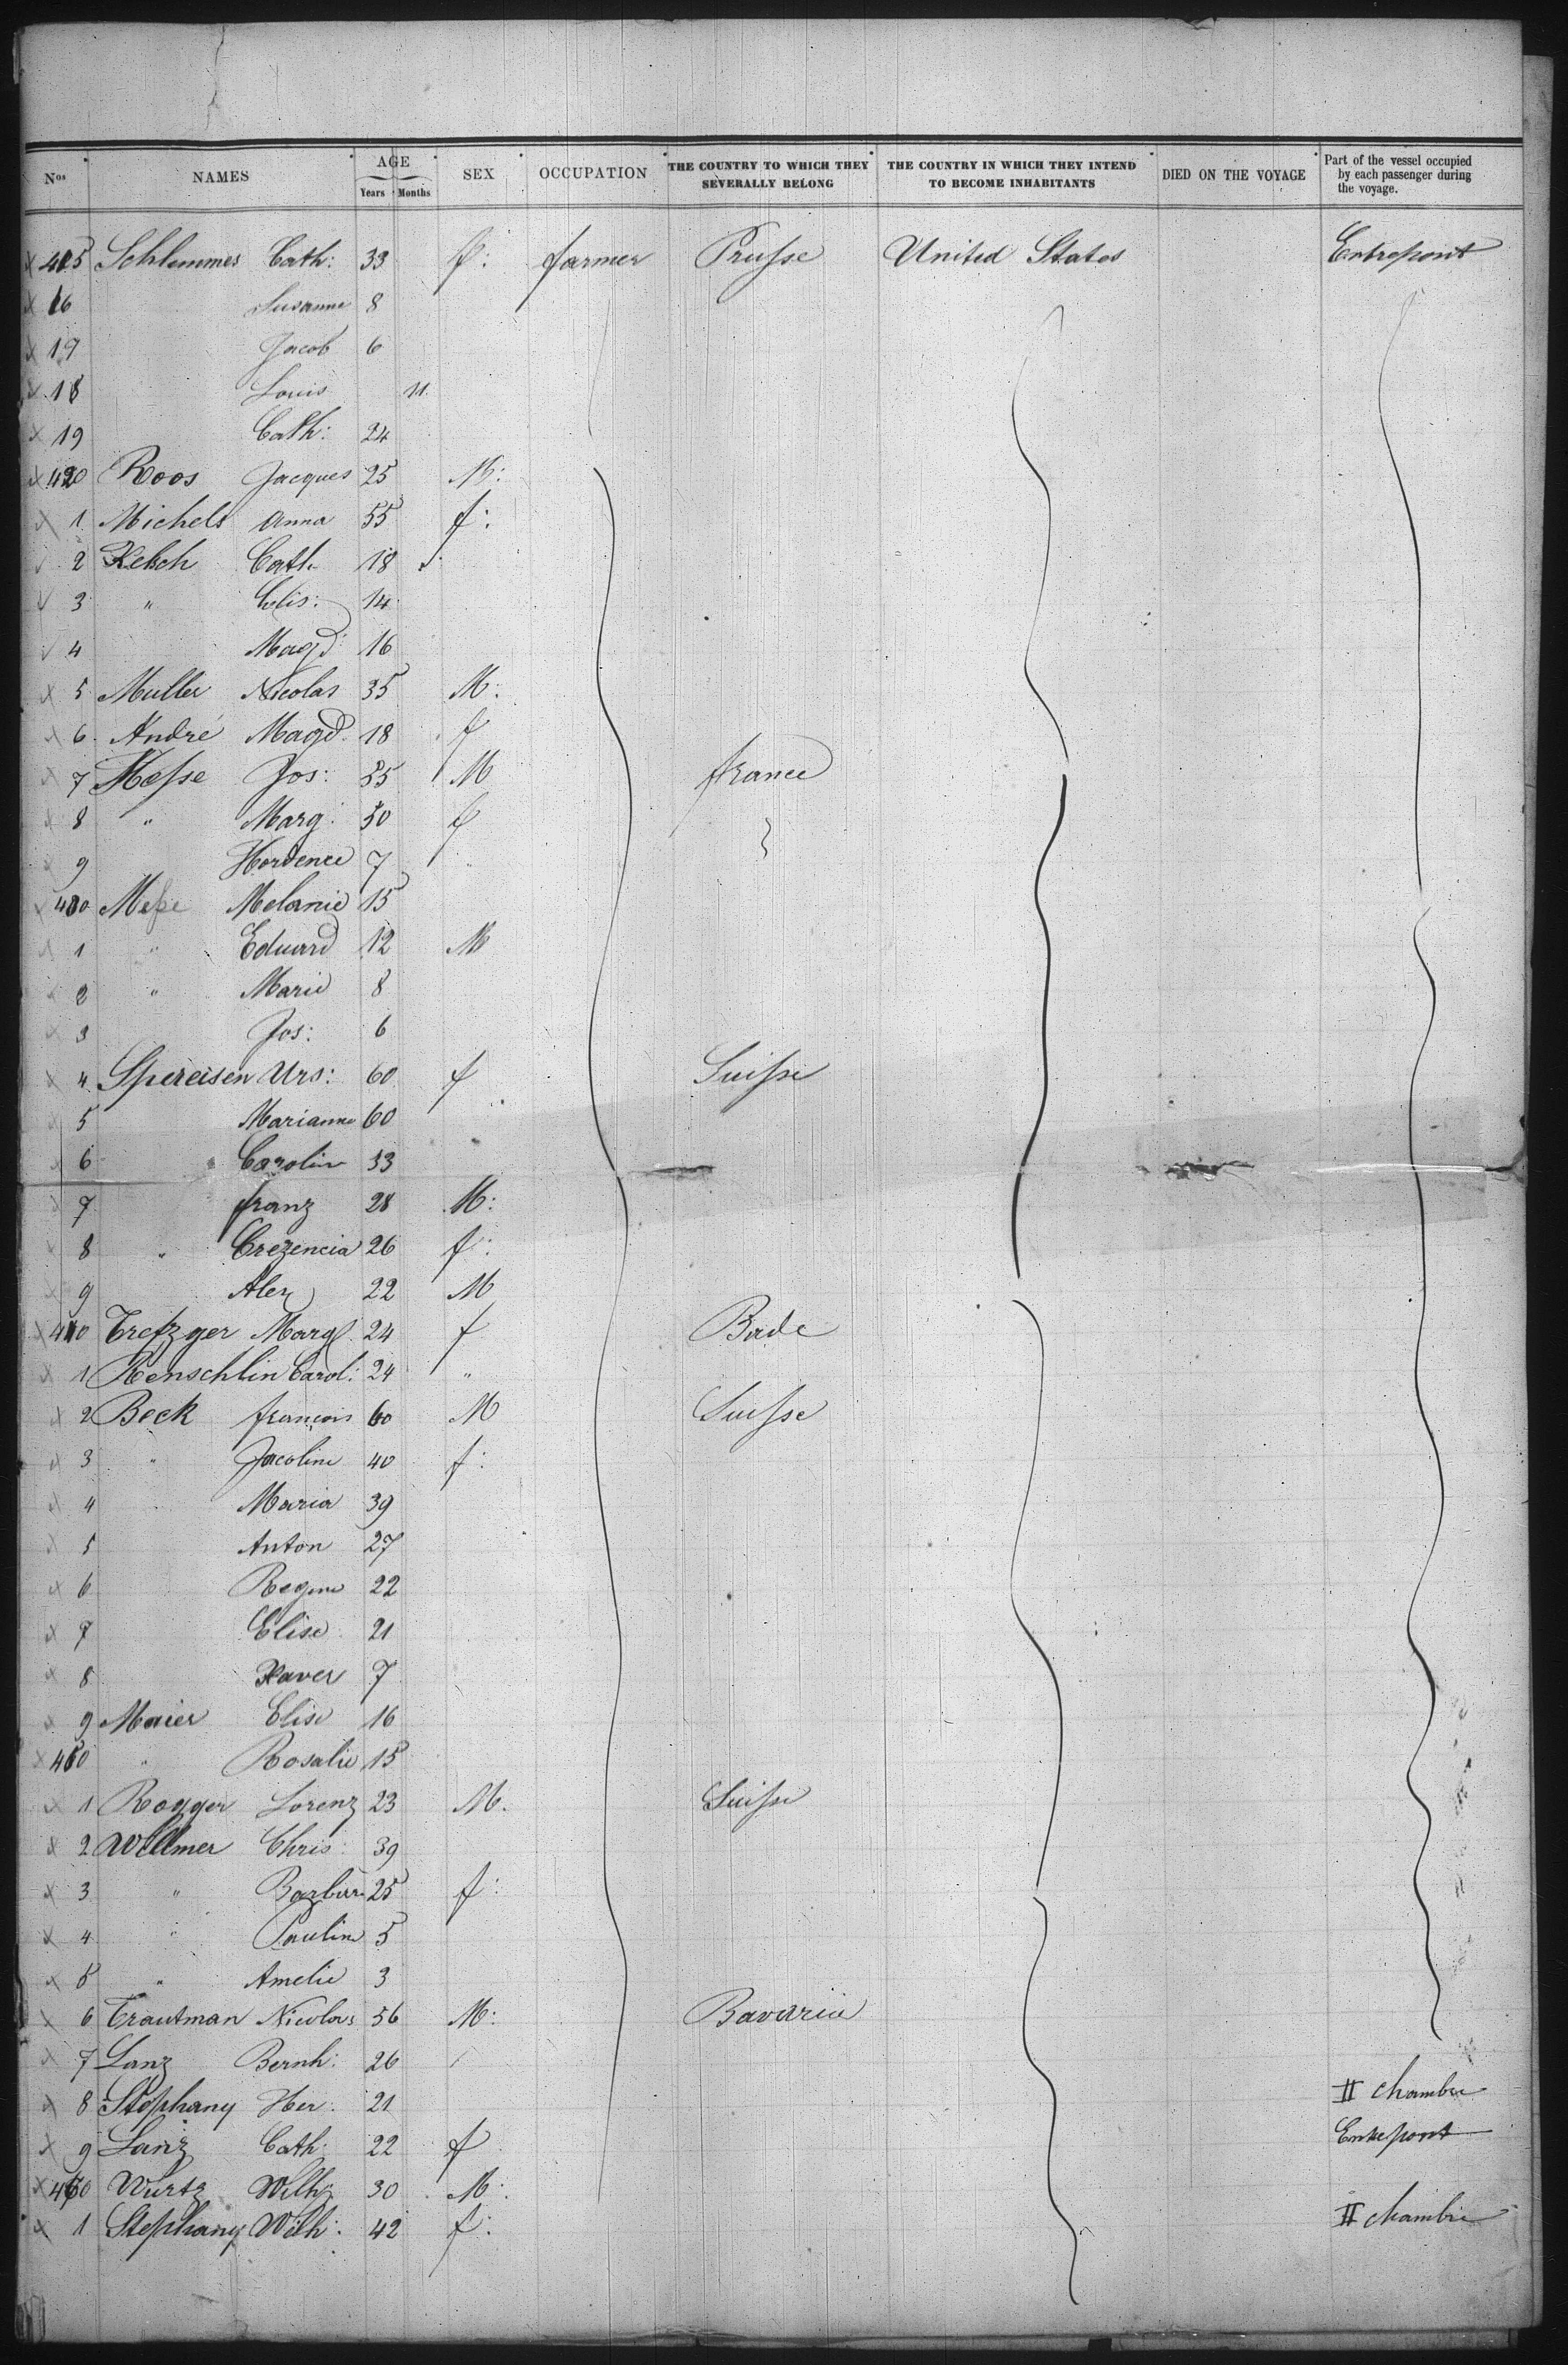 Nos NAMES AGE Years Months SEX OCCUPATION THE COUNTRY TO WHICH THEY SEVERALLY BELONG THE COUNTRY IN WHICH THEY INTEND TO BECOME INHABITANTS DIED ON THE VOYAGE Part of the vessel occupied by each passenger during the voyage.
415 Schlemmes Cath: 33 f: farmer Prusse United States Entrepont
16 Susanne 8
17 Jacob 6
18 Louis 11
19 Cath: 24
420 Roos Jacques 25 M:
1 Michels Anna 55 f:
2 Kelsch Cath 18
3 " Elis: 14
4 Magd: 16
5 Muller Nicolas 35 M:
6 André Magd. 18 f
7 Messe Jos: 35 M france
8 " Marg: 30 f
9 Hordence 7 "
430 Messe Melanie 15
1 " Eduard 12 M
2 " Marie 8
3 Jos: 6
4 Spereisen Urs: 60 f Suisse
5 Marianne 60
6 Carolin 33
7 franz 28 M:
8 " Crezencia 26 f:
9 Alex 22 M
440 Trefzger Marg. 24 f Bade
1 Renschlin Carol: 24 "
2 Beck françois 60 M Suisse
3 " Jacoline 40 f:
4 Maria 39
5 Anton 27
6 Regine 22
7 Elise 21
8 Xaver 7
9 Maier Elise 16
450 " Rosalie 15
1 Rogger Lorenz 23 M. Suisse
2 Willmer Chris: 39
3 " Barbara 25 f:
4 " Pauline 5
5 " Amelie 3
6 Trautman Nicolas 56 M: Bavaria
7 Lanz Bernh: 26
8 Stephany Her: 21 II chambre
9 Lanz Cath: 22 f Entrepont
460 Wurtz Wilh: 30 M:
1 Stephany Wilh: 42 f: II chambre